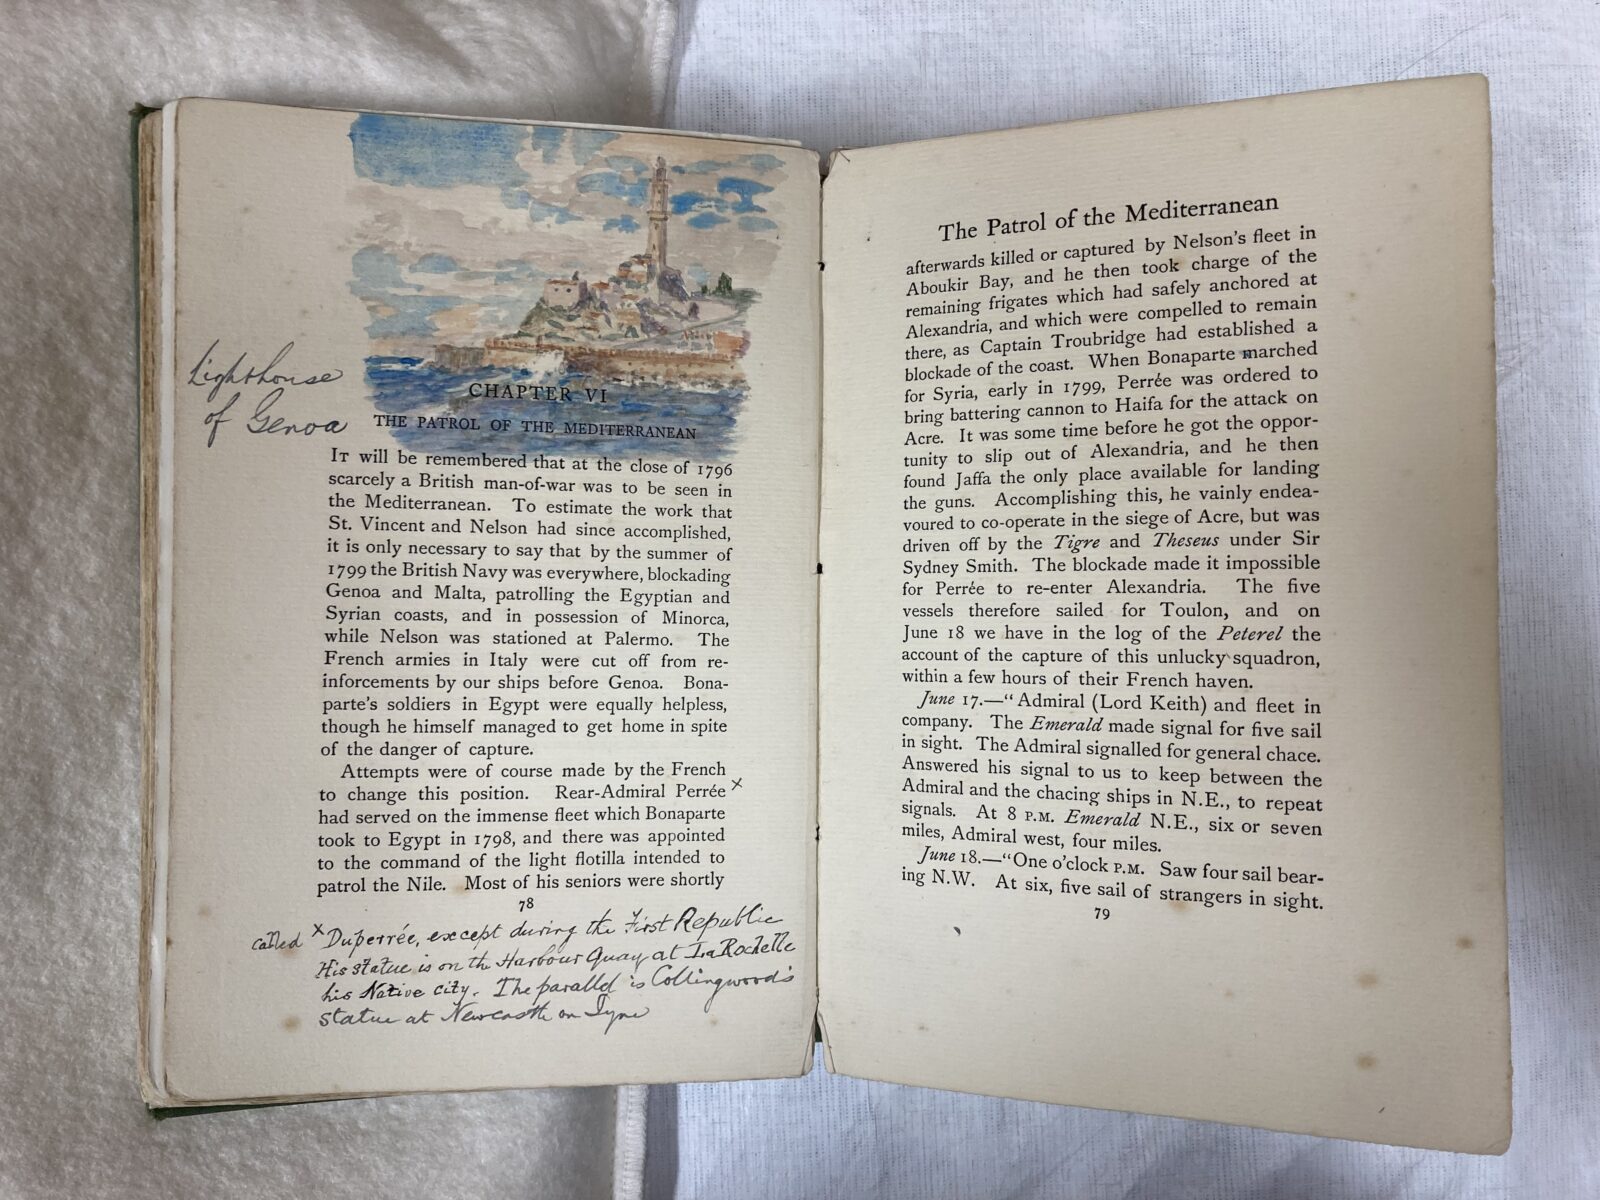 Lighthouse
of Genoa
CHAPTER VI
THE PATROL OF THE MEDITERRANEAN
IT will be remembered that at the close of 1796
scarcely a British man-of-war was to be seen in
the Mediterranean. To estimate the work that
St. Vincent and Nelson had since accomplished,
it is only necessary to say that by the summer of
1799 the British Navy was everywhere, blockading
Genoa and Malta, patrolling the Egyptian and
Syrian coasts, and in possession of Minorca,
while Nelson was stationed at Palermo. The
French armies in Italy were cut off from re-
inforcements by our ships before Genoa. Bona-
parte's soldiers in Egypt were equally helpless,
though he himself managed to get home in spite
of the danger of capture.
Attempts were of course made by the French
to change this position. Rear-Admiral Perrée x
had served on the immense fleet which Bonaparte
took to Egypt in 1798, and there was appointed
to the command of the light flotilla intended to
patrol the Nile. Most of his seniors were shortly
78
called x Duperrée, except during the First Republic
His statue is on the Harbour Quay at La Rochelle
his Native city. The parallel is Collingwood's
statue at Newcastle on Tyne
The Patrol of the Mediterranean
afterwards killed or captured by Nelson's fleet in
Aboukir Bay, and he then took charge of the
remaining frigates which had safely anchored at
Alexandria, and which were compelled to remain
there, as Captain Troubridge had established a
blockade of the coast. When Bonaparte marched
for Syria, early in 1799, Perrée was ordered to
bring battering cannon to Haifa for the attack on
Acre. It was some time before he got the oppor-
tunity to slip out of Alexandria, and he then
found Jaffa the only place available for landing
the guns. Accomplishing this, he vainly endea-
voured to co-operate in the siege of Acre, but was
driven off by the Tigre and Theseus under Sir
Sydney Smith. The blockade made it impossible
for Perrée to re-enter Alexandria. The five
vessels therefore sailed for Toulon, and on
June 18 we have in the log of the Peterel the
account of the capture of this unlucky squadron,
within a few hours of their French haven.
June 17.—"Admiral (Lord Keith) and fleet in
company. The Emerald made signal for five sail
in sight. The Admiral signalled for general chace.
Answered his signal to us to keep between the
Admiral and the chacing ships in N.E., to repeat
signals. At 8 P.M. Emerald N.E., six or seven
miles, Admiral west, four miles.
June 18.—"One o'clock P.M. Saw four sail bear-
ing N.W. At six, five sail of strangers in sight.
79